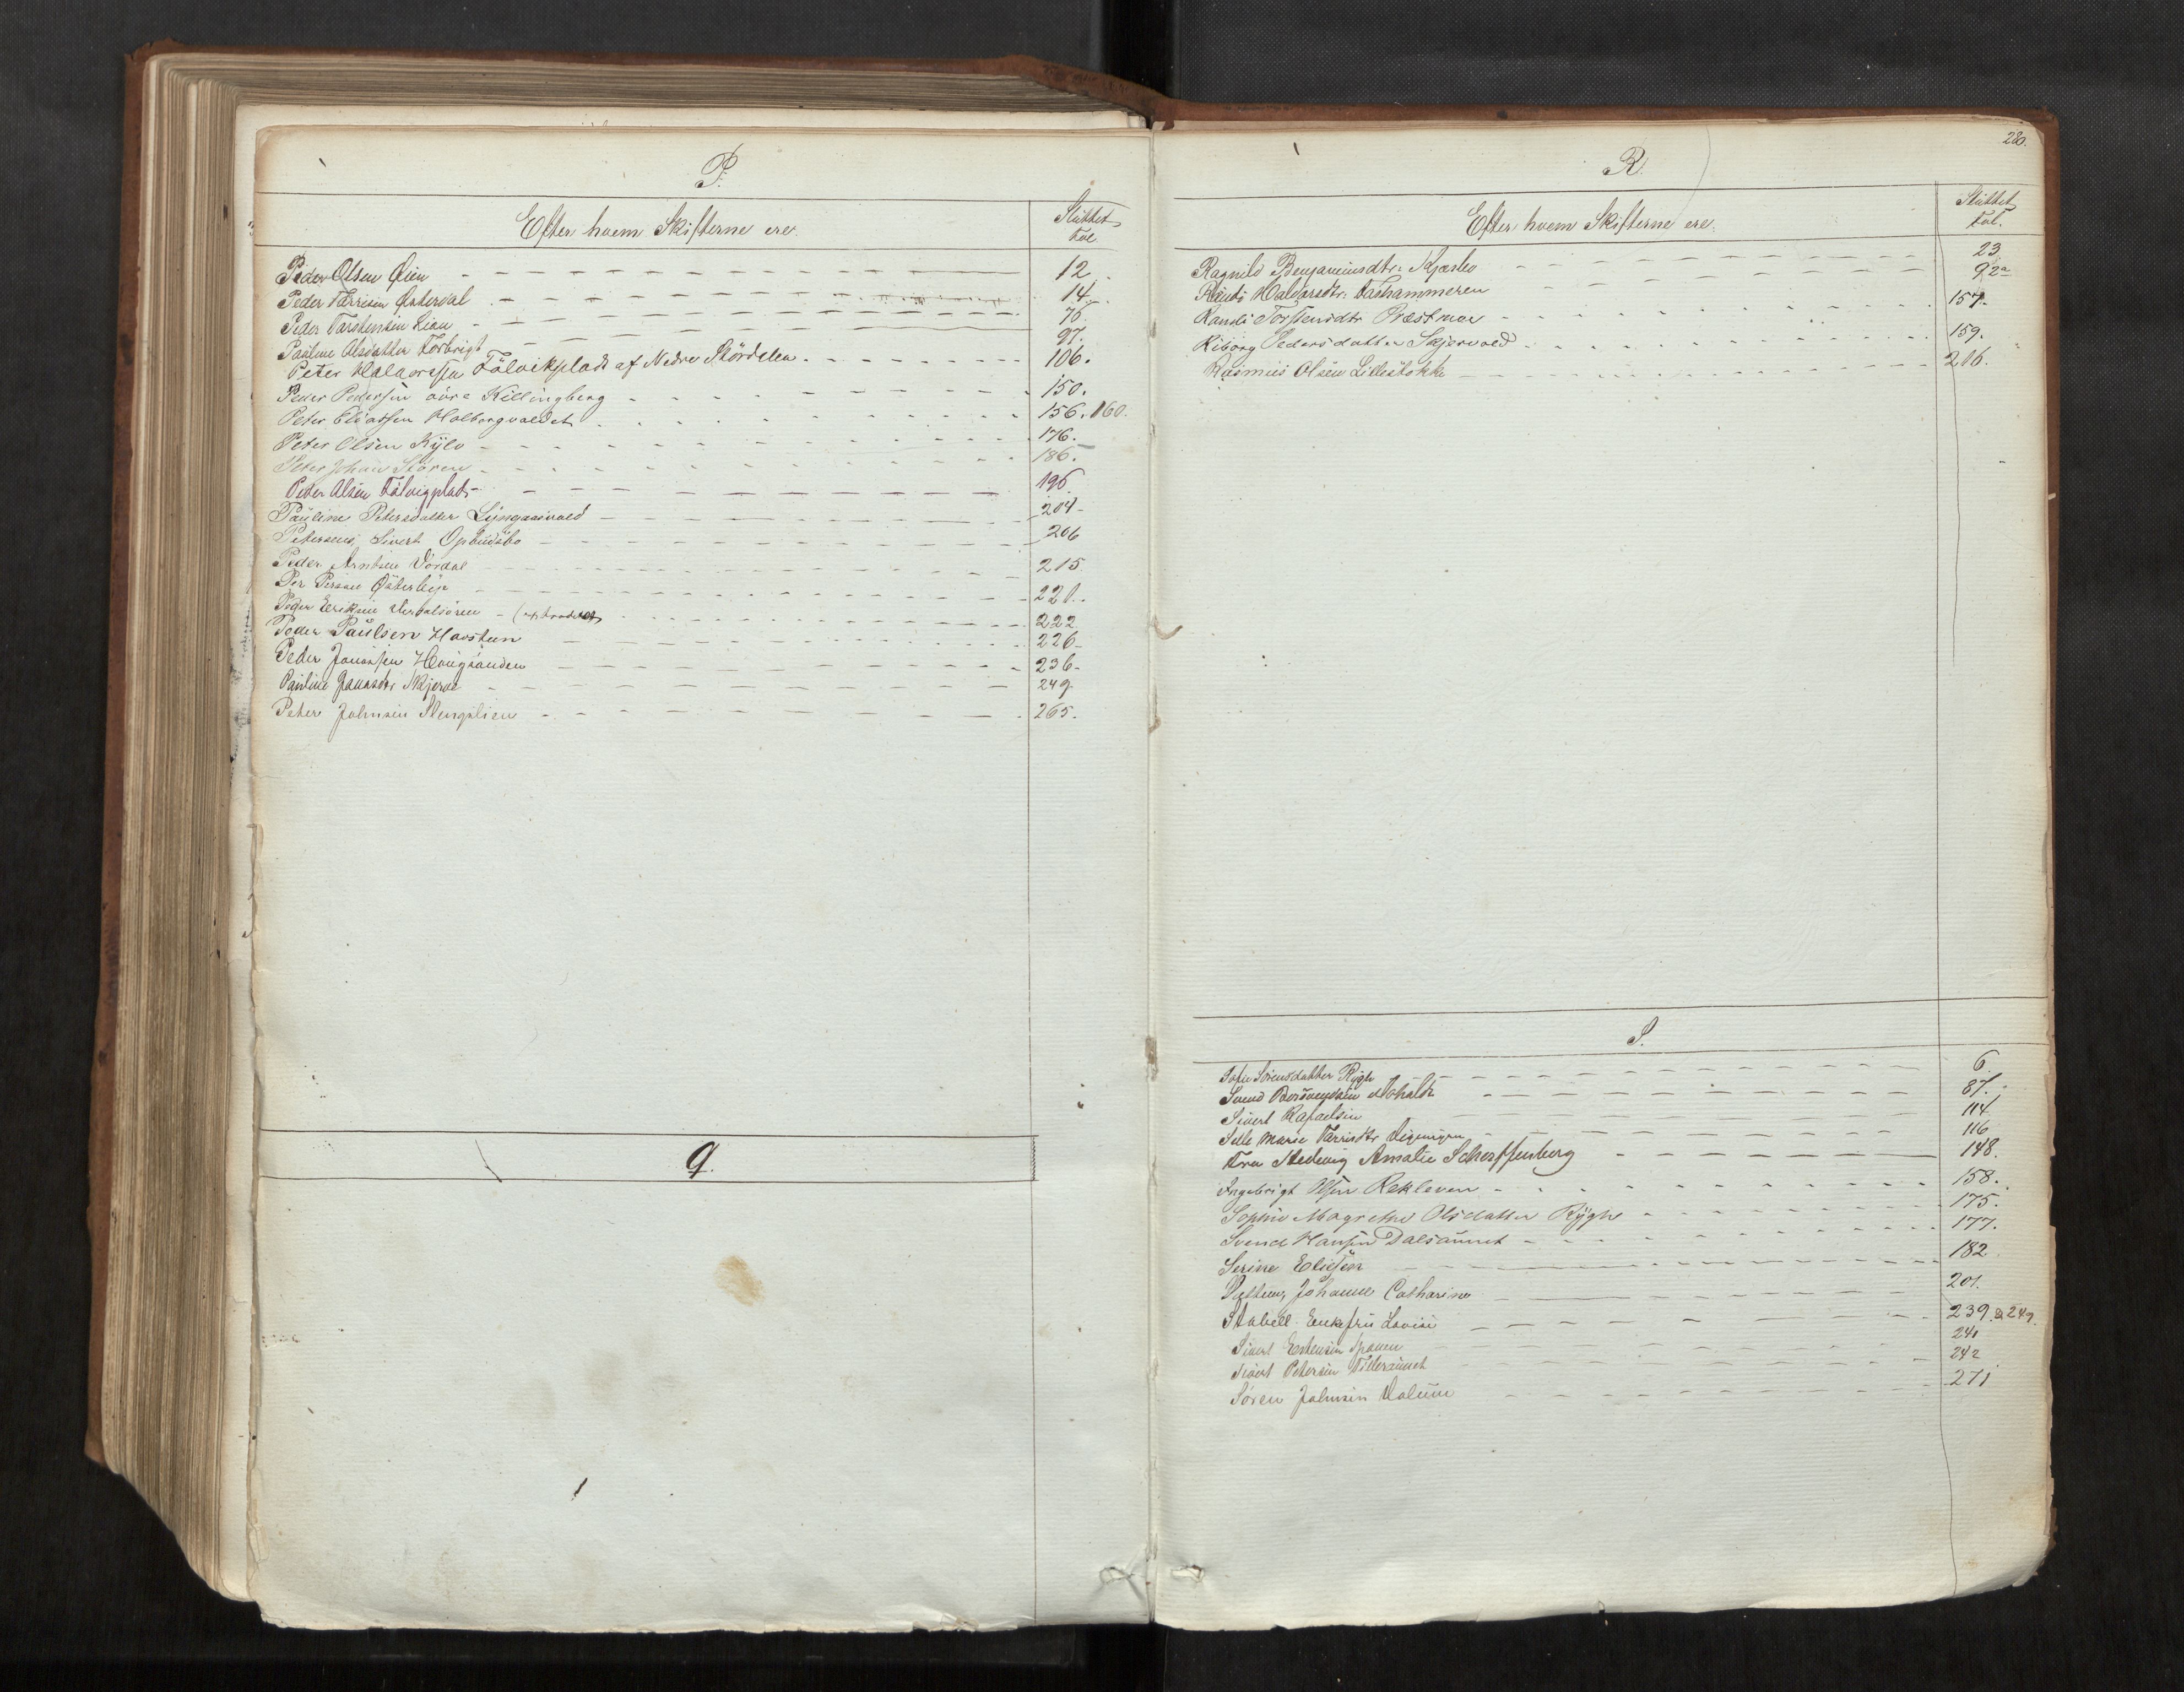 P.
Efter hvem Skifterne ere.
Sluttet Fol.
Peder Olsen Øien 12
Peder Tørrisen Østerdal 14
Peder Torstensen Lian 76
Pauline Olsdatter Forbrigt 97.
Peter Halvorsen Fölvikplads af Nedre Stördalen 106.
Peder Pedersen övre Killingberg 150.
Peter Eliassen Holborgvaldet 156. 160.
Peter Olsen Kylo 176.
Peter Johan Støren 186.
Peder Olsen Fölvigplads 196
Pauline Petersdatter Lyngaasvald 204
Petersens, Sivert 206
Peder Arntsen Vordal 215
Per Persson 221.
Peder Eriksen Verdalsøren 222
Peder Paulsen Havsteen 226
Peder Jonassen Haugsanden 236
Pauline Jonasdtr Skjerve 249.
Peter Johnsen Stengslien 265.
Q.
280.
R.
Efter hvem Skifterne ere.
Sluttet Fol.
Ragnild Benjaminsdtr: 23
Randi Halvorsdtr: 92a
Randi Torstensdtr Præstmoe 157.
Riborg Pedersdatter Skjervold 159.
Rasmus Olsen Lillestokke 216.
S.
Sofie Sörensdatter Rygh 6
Svend 87.
Sivert Rafaelsen 114
Marie Tørrisdtr 116
Fru Hedevig Amalie Scherffenberg 148.
Ingebrigt Olsen Rekleven 158.
Sophie Magrethe Olsdatter Rygh 175.
Svend Hansen Dalsaunet 177.
Serine Eliesen 182
Johanne Catharine 201.
Stabell Enkefru Lovise 239. & 249.
Sivert Estensen 241
Sivert Petersen Tillersaunet 242
Søren Johnsen Valum 271